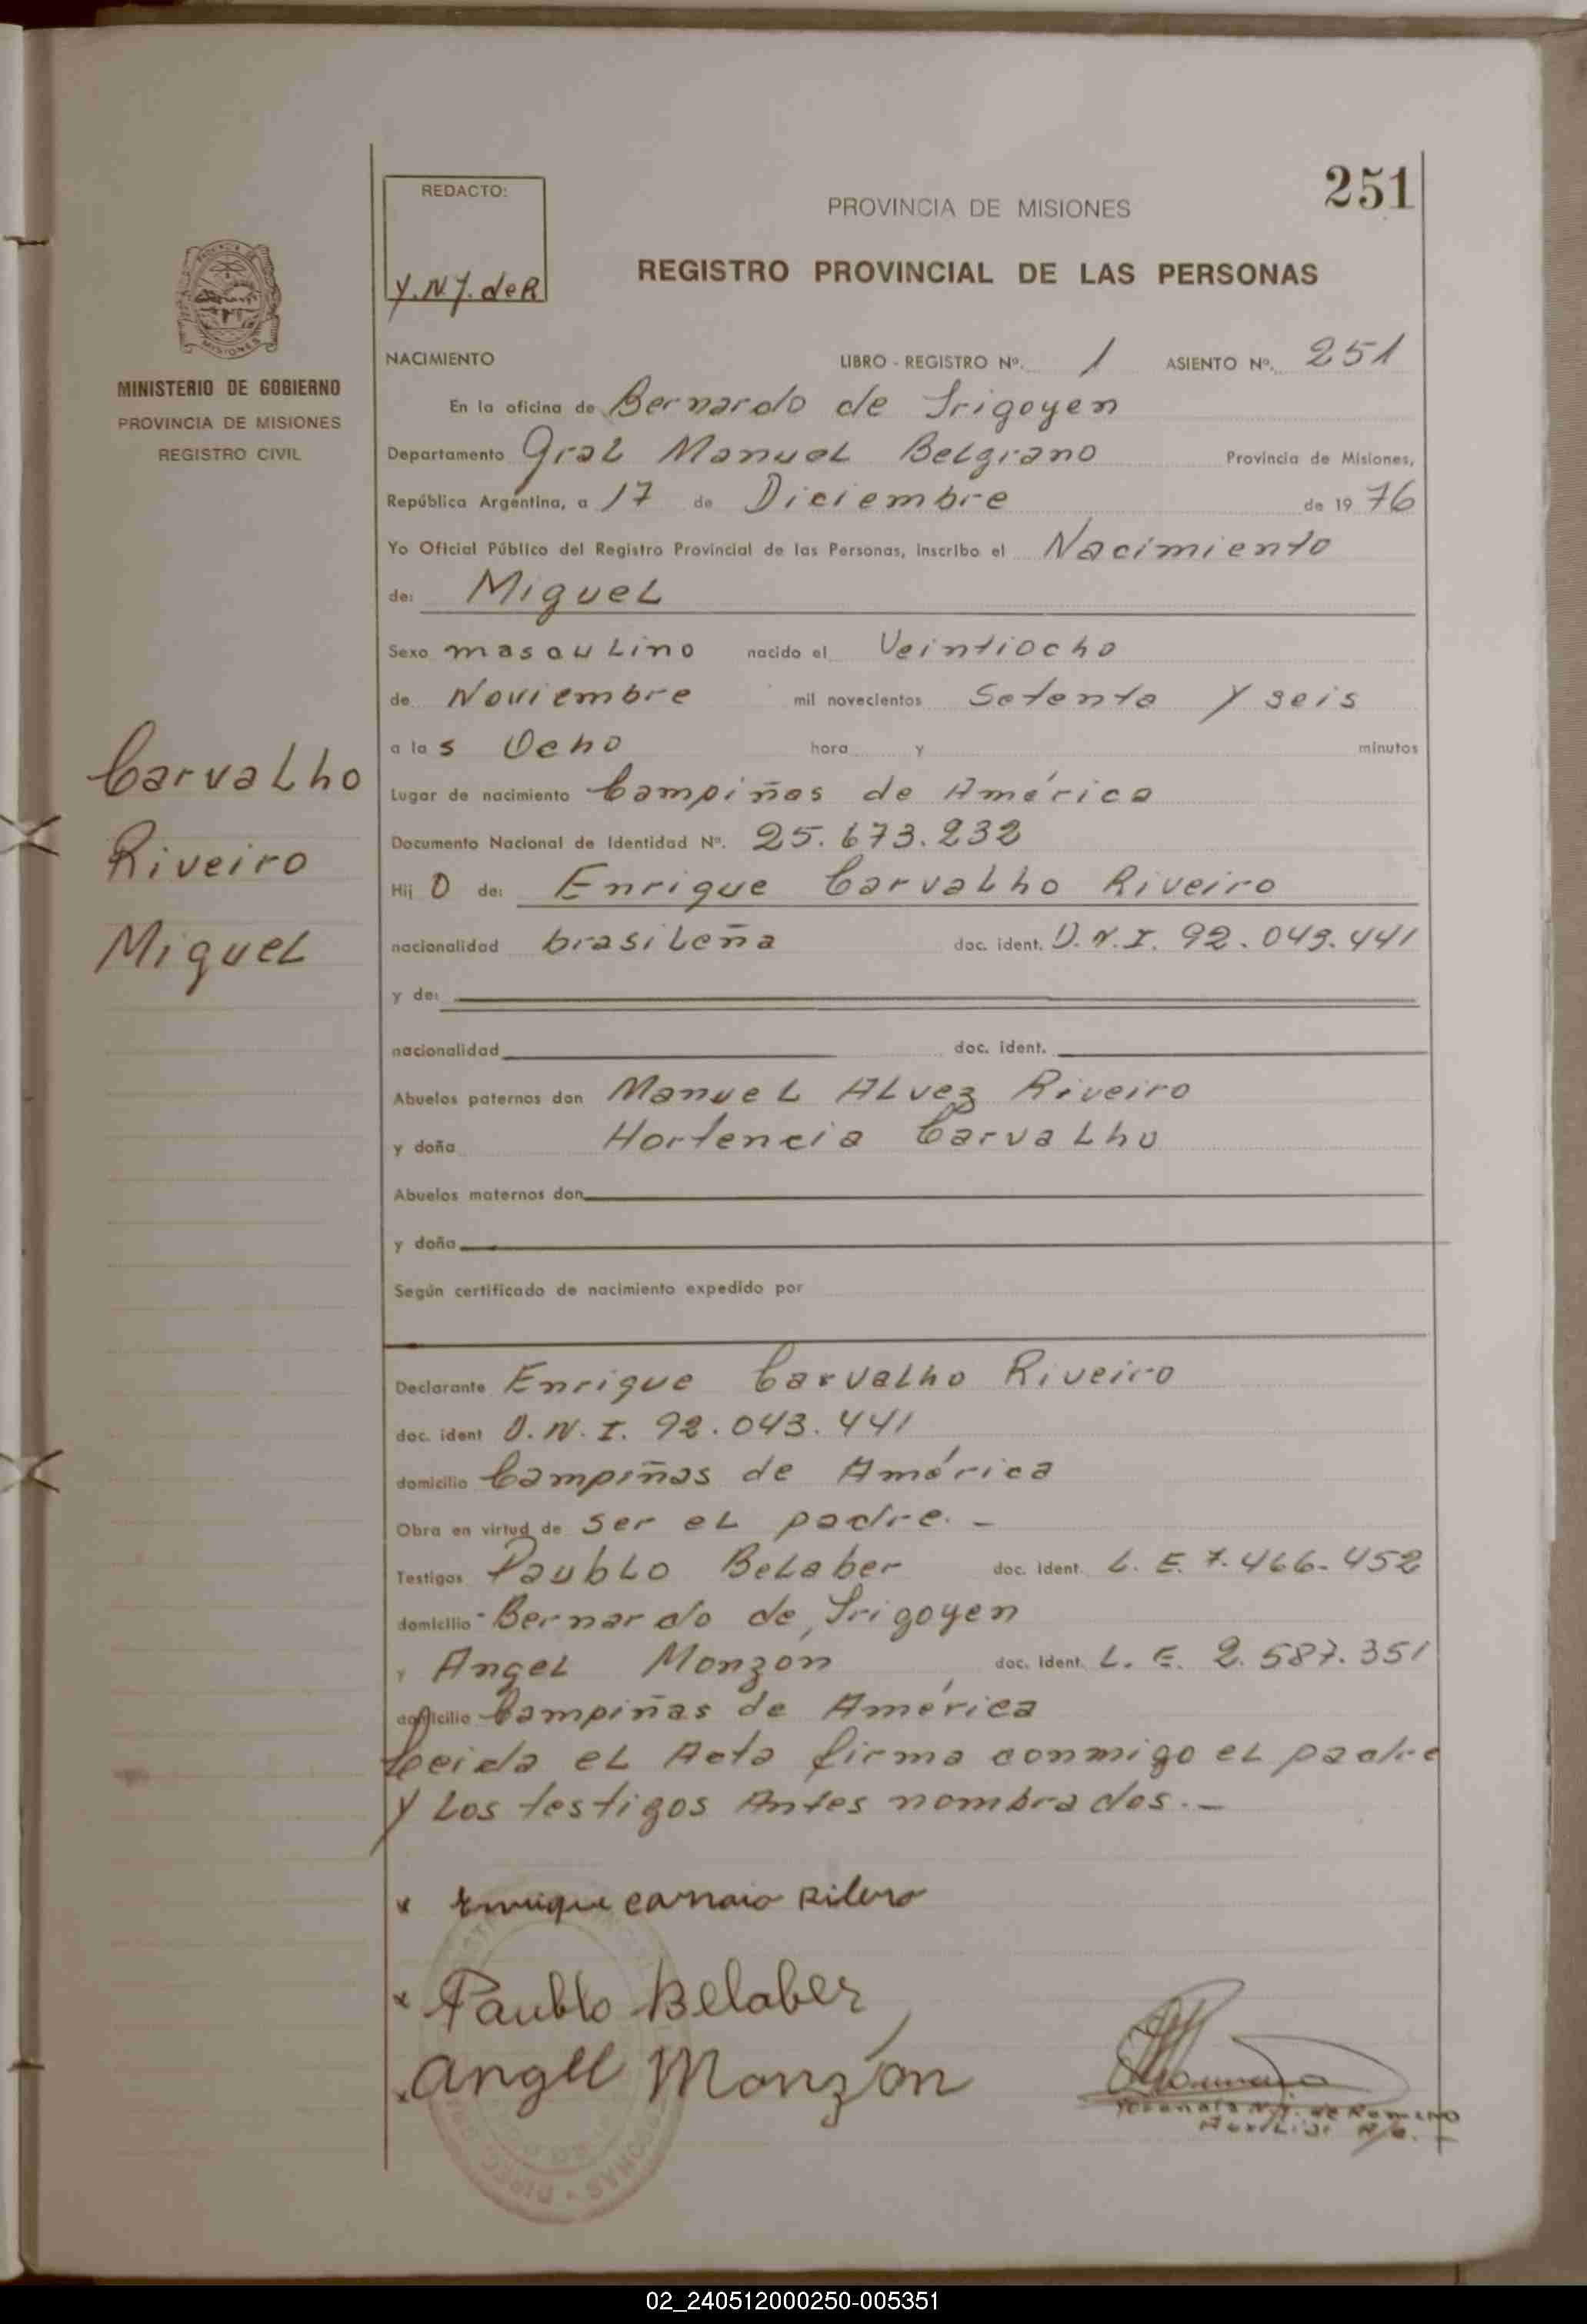 251
REDACTO:
Y.N.J. de R
PROVINCIA DE MISIONES
REGISTRO PROVINCIAL DE LAS PERSONAS
MISIONES
MINISTERIO DE GOBIERNO
PROVINCIA DE MISIONES
REGISTRO CIVIL
NACIMIENTO LIBRO - REGISTRO Nº. 1 ASIENTO Nº. 251
En la oficina de Bernardo de Irigoyen
Departamento Gral Manuel Belgrano Provincia de Misiones,
República Argentina, a 17 de Diciembre de 1976
Yo Oficial Público del Registro Provincial de las Personas, inscribo el Nacimiento
de: Miguel
Sexo masculino nacido el Veintiocho
de Noviembre mil novecientos Setenta y seis
a las Ocho hora y minutos
Carvalho
Riveiro
Miguel
Lugar de nacimiento Campiñas de América
Documento Nacional de Identidad Nº. 25.673.232
Hijo de: Enrique Carvalho Riveiro
nacionalidad brasileña doc. ident. D.N.I. 92.043.441
y de:
nacionalidad doc. ident.
Abuelos paternos don Manuel Alvez Riveiro
y doña Hortencia Carvalho
Abuelos maternos don
y doña
Según certificado de nacimiento expedido por
Declarante Enrique Carvalho Riveiro
doc. ident D.N.I. 92.043.441
domicilio Campiñas de América
Obra en virtud de ser el padre.-
Testigos Paublo Belaber doc. ident. L.E. 7.466.452
domicilio Bernardo de Irigoyen
y Angel Monzón doc. ident. L.E. 2.587.351
domicilio Campiñas de América
Leida el Acta firma conmigo el padre
y los testigos Antes nombrados.-
x Enrique
x Paublo Belaber
x Angel Monzón
de Romero
02_240512000250-005351